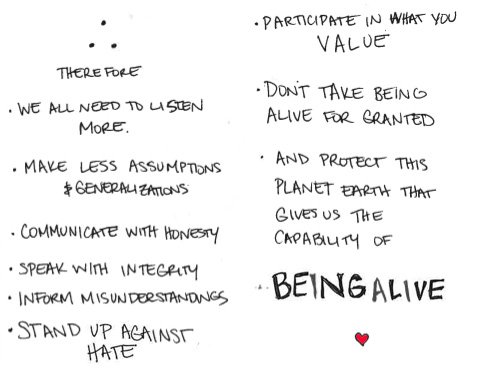 ∴
THEREFORE
• WE ALL NEED TO LISTEN
MORE.
• MAKE LESS ASSUMPTIONS
& GENERALIZATIONS
• COMMUNICATE WITH HONESTY
• SPEAK WITH INTEGRITY
• INFORM MISUNDERSTANDINGS
• STAND UP AGAINST
HATE
• PARTICIPATE IN WHAT YOU
VALUE
• DON'T TAKE BEING
ALIVE FOR GRANTED
• AND PROTECT THIS
PLANET EARTH THAT
GIVES US THE
CAPABILITY OF
BEING ALIVE